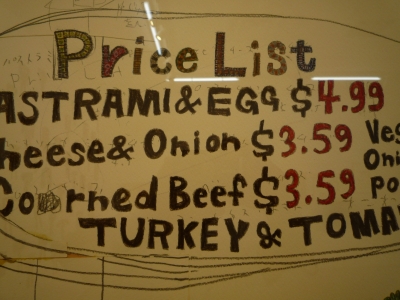 Price List
ASTRAMI & EGG $4.99
heese & Onion $3.59 Veg
Corned Beef $3.59 Oni
TURKEY & TOMA Po